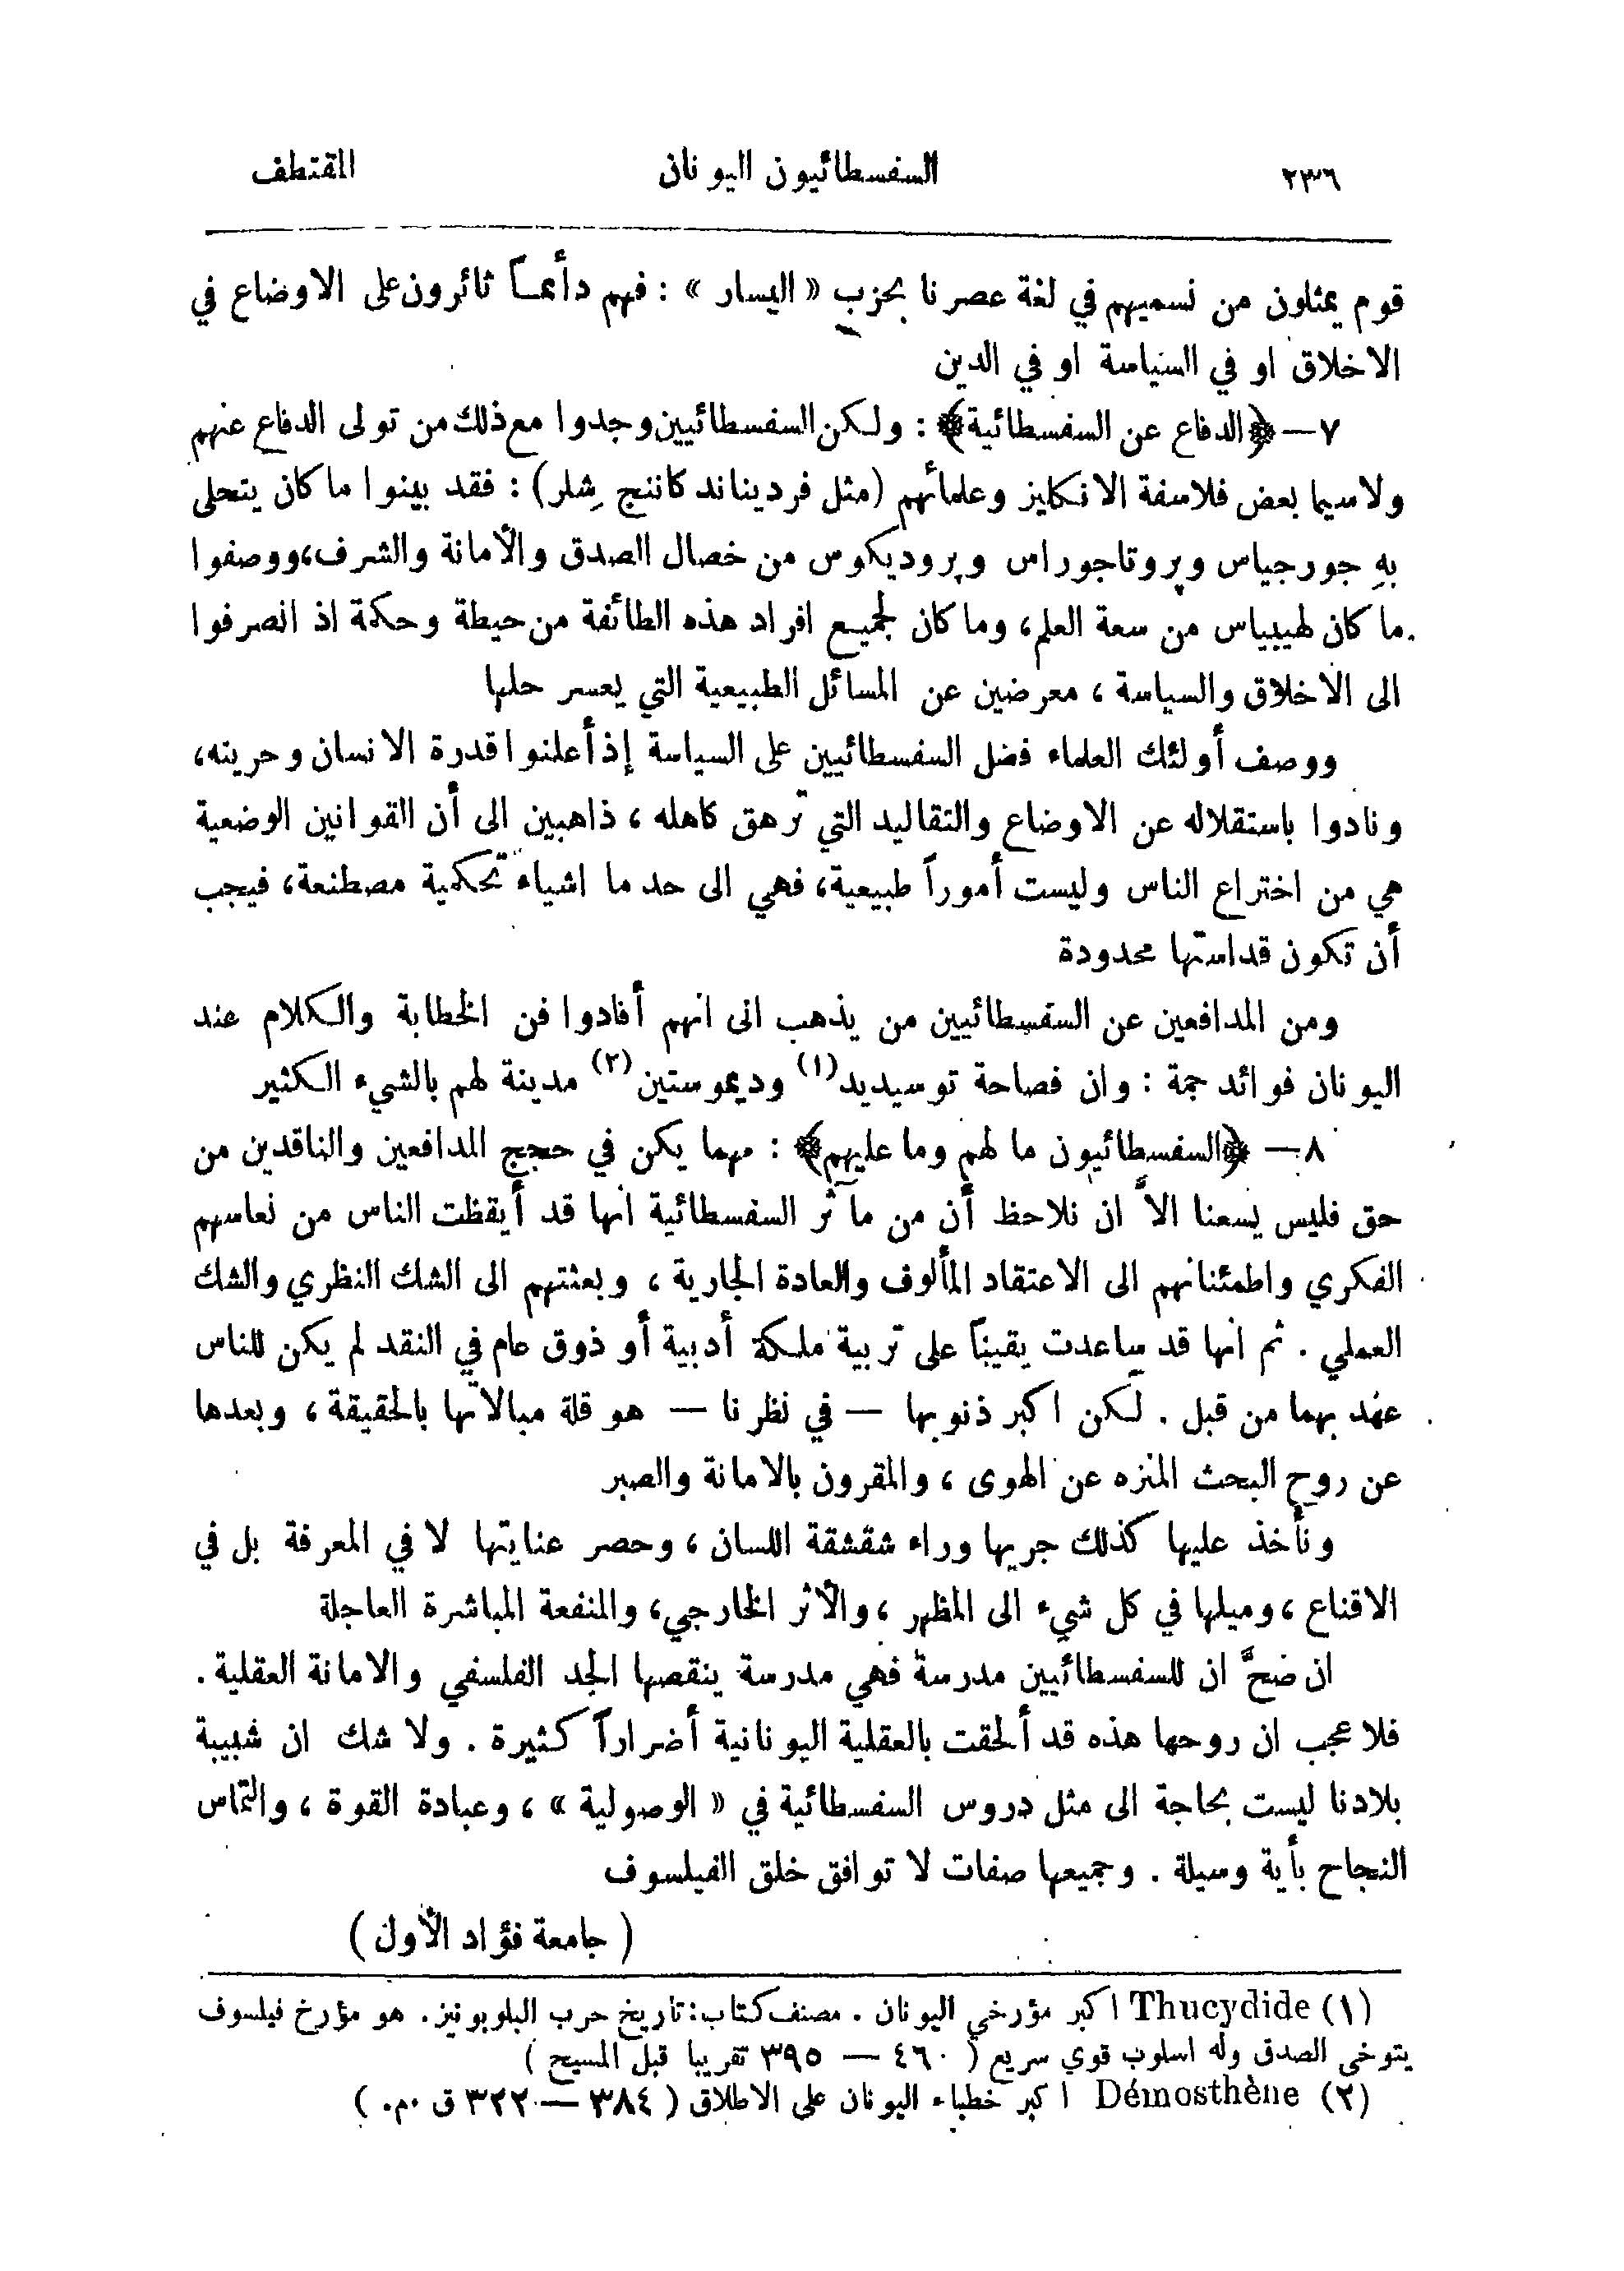 ٢٣٦ السفسطائيون اليونان المقتطف
قوم يمثلون من نسميهم في لغة عصرنا بحزب « اليسار » : فهم دائماً ثائرون على الاوضاع في
الاخلاق او في السياسة او في الدين
٧ — ﴿الدفاع عن السفسطائية﴾ : ولكن السفسطائيين وجدوا مع ذلك من تولى الدفاع عنهم
ولاسيما بعض فلاسفة الانكليز وعلمائهم (مثل فرديناند كاننج شِلر) : فقد بينوا ما كان يتحلى
بهِ جورجياس وپروتاجوراس وپروديكوس من خصال الصدق والأمانة والشرف، ووصفوا
ما كان لهيبياس من سعة العلم، وما كان لجميع افراد هذه الطائفة من حيطة وحكمة اذ انصرفوا
الى الاخلاق والسياسة ، معرضين عن المسائل الطبيعية التي يعسر حلها
ووصف أولئك العلماء فضل السفسطائيين على السياسة إذ أعلنوا قدرة الانسان وحريته،
ونادوا باستقلاله عن الاوضاع والتقاليد التي ترهق كاهله ، ذاهبين الى أن القوانين الوضعية
هي من اختراع الناس وليست أموراً طبيعية، فهي الى حد ما اشياء تحكمية مصطنعة، فيجب
أن تكون قداستها محدودة
ومن المدافعين عن السفسطائيين من يذهب الى انهم أفادوا فن الخطابة والكلام عند
اليونان فوائد جمة : وان فصاحة توسيديد(١) وديموستين(٢) مدينة لهم بالشيء الكثير
٨ — ﴿السفسطائيون ما لهم وما عليهم﴾ : مهما يكن في حجج المدافعين والناقدين من
حق فليس يسعنا الاَّ ان نلاحظ أن من مآثر السفسطائية انها قد أيقظت الناس من نعاسهم
الفكري واطمئنانهم الى الاعتقاد المألوف والعادة الجارية ، وبعثتهم الى الشك النظري والشك
العملي . ثم انها قد ساعدت يقيناً على تربية ملكة أدبية أو ذوق عام في النقد لم يكن للناس
عهد بهما من قبل . لكن اكبر ذنوبها — في نظرنا — هو قلة مبالاتها بالحقيقة ، وبعدها
عن روح البحث المنزه عن الهوى ، والمقرون بالامانة والصبر
ونأخذ عليها كذلك جريها وراء شقشقة اللسان ، وحصر عنايتها لا في المعرفة بل في
الاقناع ، وميلها في كل شيء الى المظهر ، والأثر الخارجي، والمنفعة المباشرة العاجلة
ان صحَّ ان للسفسطائيين مدرسة فهي مدرسة ينقصها الجد الفلسفي والامانة العقلية .
فلا عجب ان روحها هذه قد ألحقت بالعقلية اليونانية أضراراً كثيرة . ولا شك ان شبيبة
بلادنا ليست بحاجة الى مثل دروس السفسطائية في « الوصولية » ، وعبادة القوة ، والتماس
النجاح بأية وسيلة . وجميعها صفات لا توافق خلق الفيلسوف
( جامعة فؤاد الأول )
(١) Thucydide اكبر مؤرخي اليونان . مصنف كتاب: تاريخ حرب البلوبونيز. هو مؤرخ فيلسوف
يتوخى الصدق وله اسلوب قوي سريع ( ٤٦٠ — ٣٩٥ تقريبا قبل المسيح )
(٢) Démosthène اكبر خطباء اليونان على الاطلاق ( ٣٨٤ — ٣٢٢ ق .م. )